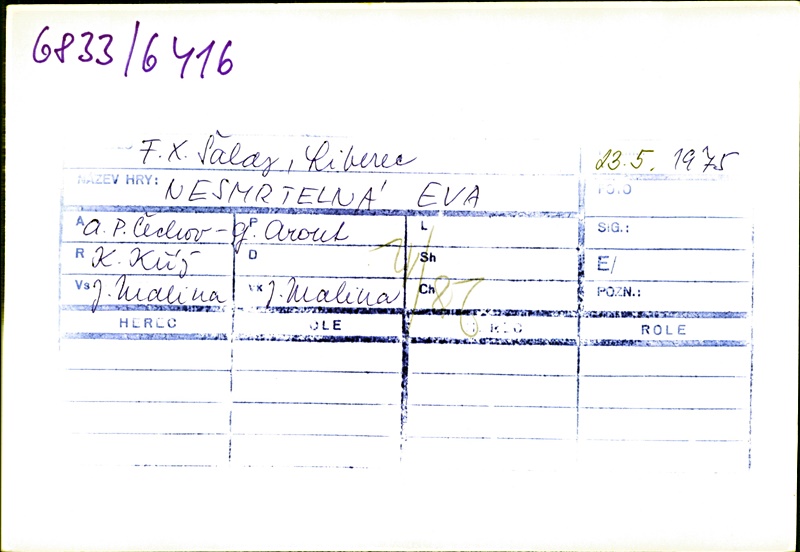 6833/6416
F. X. Šalda, Liberec 23.5. 1975
NÁZEV HRY: NESMRTELNÁ EVA FOTO
A A. P. Čechov - G. Arout P L SIG.:
R K. Kříž D Sh E/
Vs J. Malina Vk J. Malina Ch POZN.:
HEREC ROLE HEREC ROLE